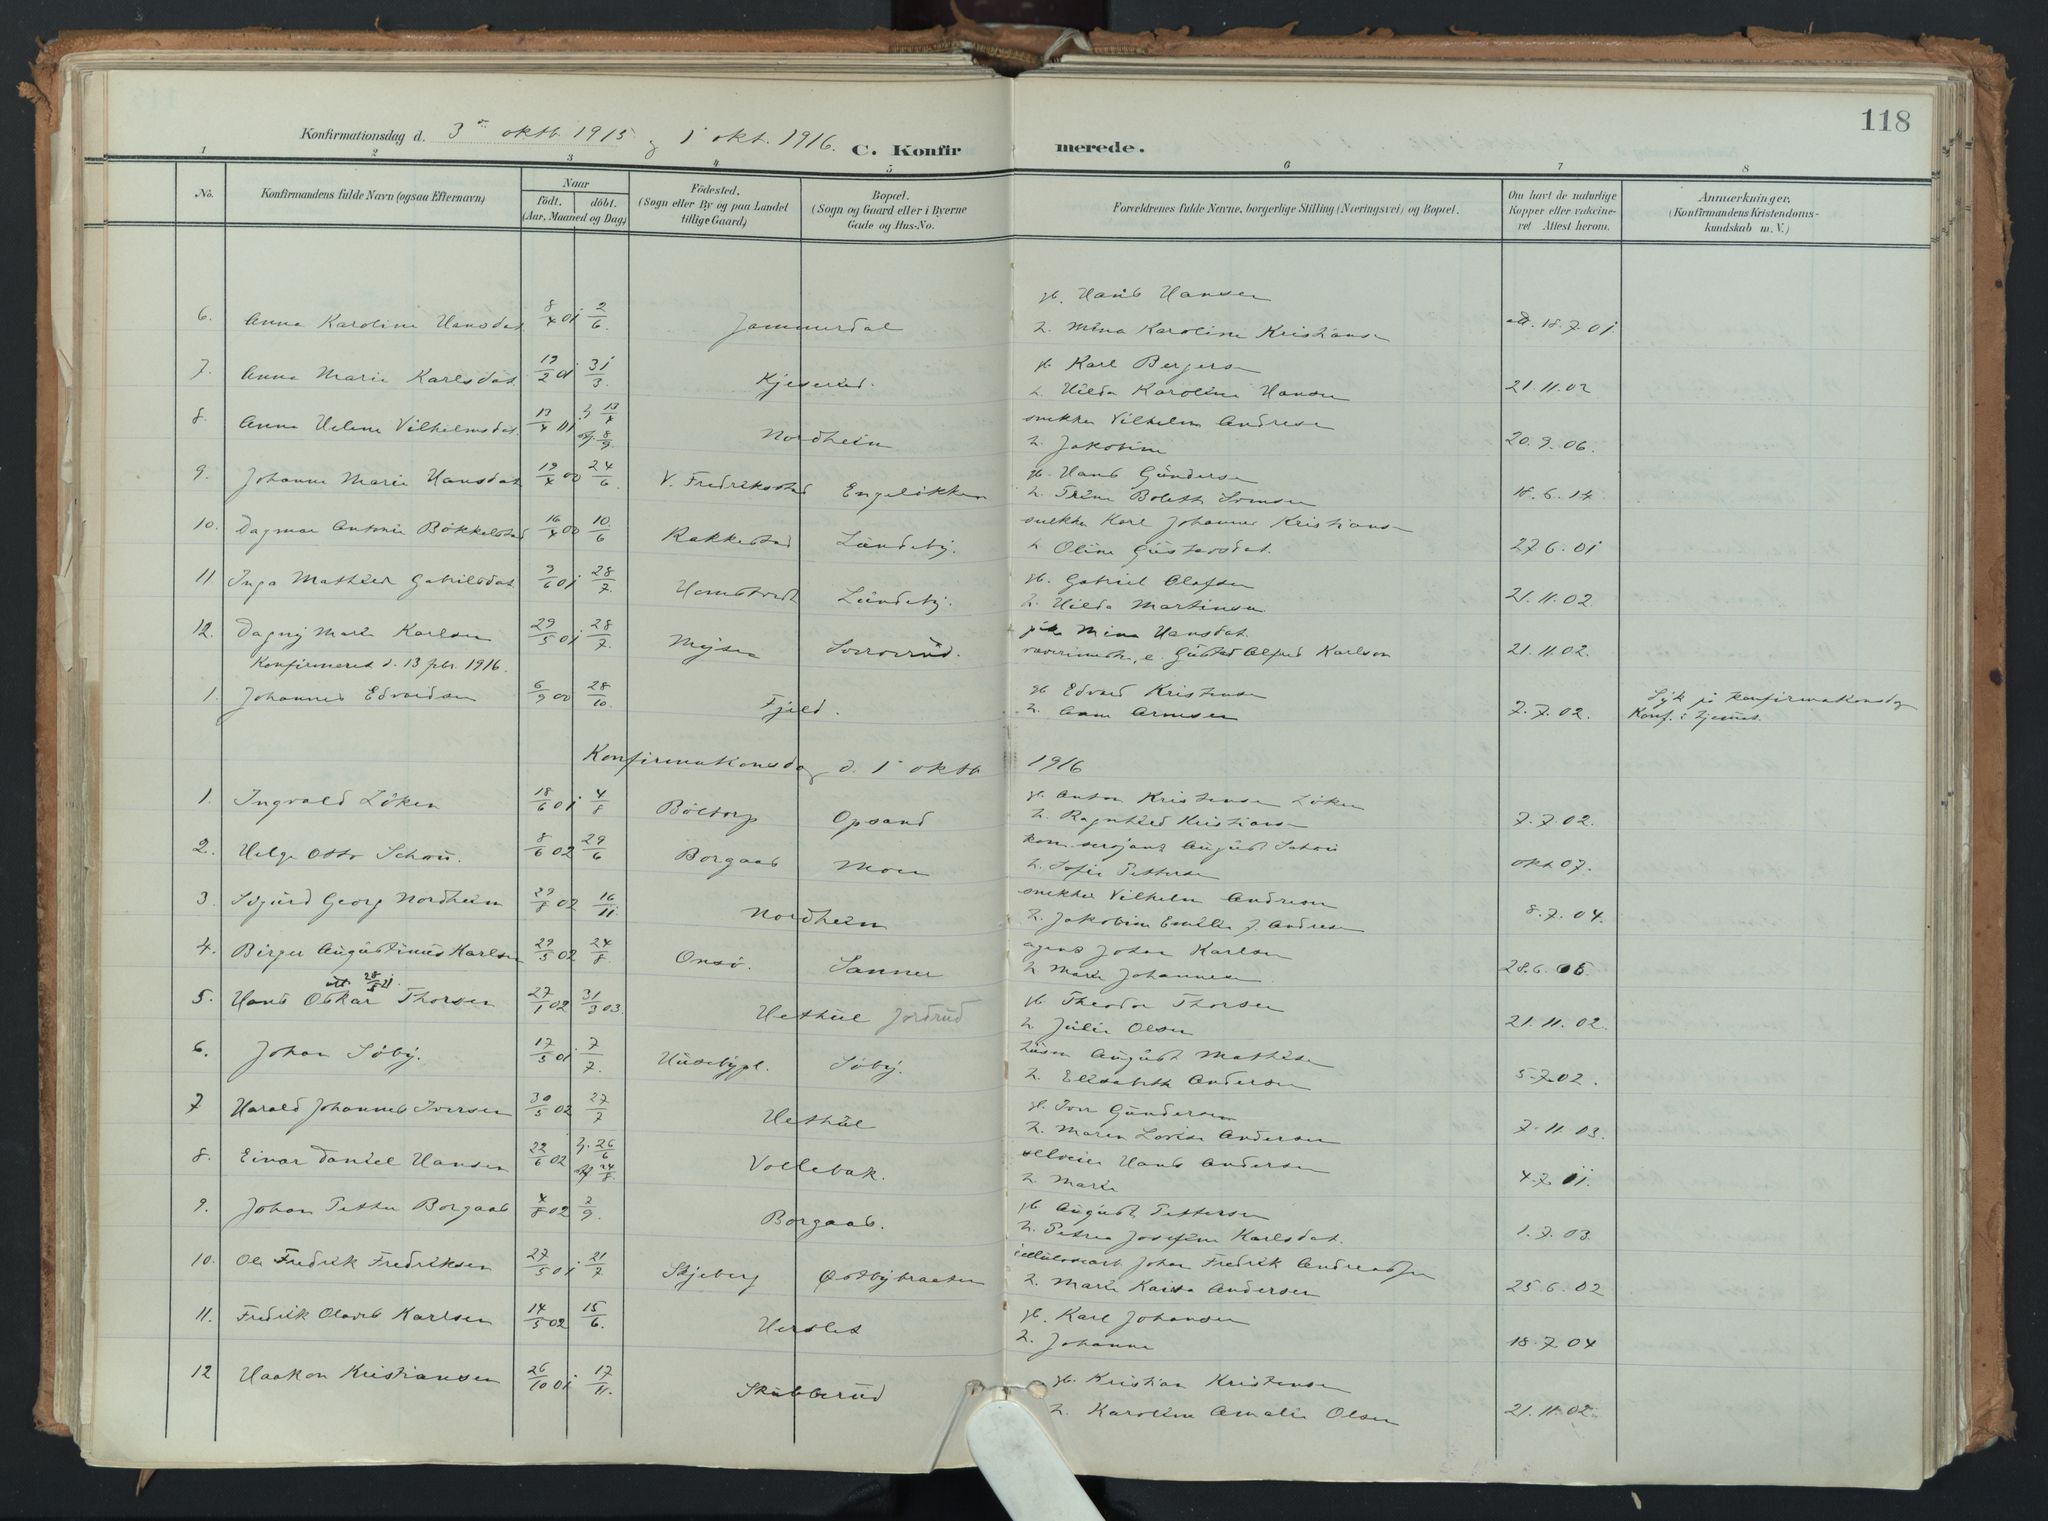 118
Konfirmationsdag d. 3 oktb. 1915 og 1 okt. 1916. C. Konfirmerede.
1 2 3 4 5 6 7 8
No. Konfirmandens fulde Navn (ogsaa Efternavn) Naar født. døbt. (Aar, Maaned og Dag) Fødested. (Sogn eller By og paa Landet tillige Gaard) Bopæl. (Sogn og Gaard eller i Byerne Gade og Hus-No. Forældrenes fulde Navne, borgerlige Stilling (Næringsvei) og Bopæl. Om havt de naturlige Kopper eller vakcineret Attest herom. Anmærkninger. (Konfirmandens Kristendomskundskab m. V.)
gb. Hans Hansen
6. Anna Karoline Hansdat 8/4 01 2/6. Jammerdal h. Mina Karoline Kristians 18.7.01.
gb. Karl Bergers
7. Anna Marie Karlsdat 19/2 01 31/3. Kjeserud. h. Hilda Karoline Hansen 21.11.02
8. Anna Helene Vilhelmsdat. 13/4 01 h 13/4 8/9. Nordheim snekker Vilhelm Andresen
h. Jakobine 20.9.06.
9. Johanne Marie Hansdat 19/4 00 24/6. V. Fredriksstad Engeløkken gb. Hans Gundersen
h. Trine Boleth Svensen 18.6.14
10. Dagmar Antonie Bøkkelstad 16/4 00 10/6 Rakkestad Lundeby. snekker Karl Johannes Kristians
h Oline Gustavsdat. 27.6.01
11 Inga Mathild Gabrilsdat 9/6 01 28/7. Lundeby. gb. Gabriel Olafsen
h. Hilda Martinsen 21.11.02.
12. Dagny Marie Karlsen 29/5 01 28/7. Mysen pike Mina Hansdat.
Konfirmeret d. 13 febr. 1916. Gustav Alfred Karlson 21.11.02.
1. Johannes Edvardsen 6/9 00 28/10. Fjeld. gb Edvard Kristensen Syk på konfirmationsdag
h. Anne Arnesen 7.7.02. Konf. i hjemmet.
Konfirmationsdag d. 1 oktb 1916
1. Ingvald Løken 18/6 01 4/8 Böltorp Opsand gb. Anton Kristensen Løken
h. Ragnhild Kristians 7.7.02.
2. Helge Otto Schou. 8/6 02 29/6 Borgaas Moen kom. sersjant August Schou
h. Sofie Pettersen okt 07.
3. Sigurd Georg Nordheim 29/8 02 16/11. Nordheim snekker Vilhelm Andresen
h. Jakobine Emilie f. Andresen 8.7.04.
4. Birger Augustinus Karlsen 29/5 02 24/8 Onsø. Sanner agent Johan Karlsen
h Marie Johannesen 28.6.05.
att 28/5 21
5. Hans Oskar Thorsen 27/1 02 31/3 03. Uethül Jordrud gb. Theodor Thorsen
h. Julie Olsen 21.11.02.
6. Johan Søby. 17/5 01 7/7. Husebypl. Søby. husm August Mathisen
h. Elisabeth Andersen 5.7.02.
7 Harald Johannes Iversen 30/5 02 27/7 Uethül gb. Iver Gundersen
h. Maren Lovise Andersen 7.11.03.
8. Einar Daniel Hansen 22/6 02 h. 26/6 24/8. Vollebak. selveier Hans Andersen
h Marie 4.7.11.
9. Johan Petter Borgaas 4/8 02 7/9. Borgaas. gb August Pettersen
h. Petrea Josefine Karlsdat. 1.7.03.
10. Ole Fredrik Fredriksen 27/5 01 21/7 Skjeberg Østbybraaten cellulosearb. Johan Fredrik Andreassen
h. Marie Kaisa Andersen 25.6.02
11. Fredrik Olavus Karlsen 14/5 02 15/6. Herslet gb. Karl Johansen
h. Johanne 18.7.04
12 Haakon Kristiansen 26/10 01 17/11. Skibberud gb. Kristian Kristensen
h. Karoline Amalie Olsen 21.11.02